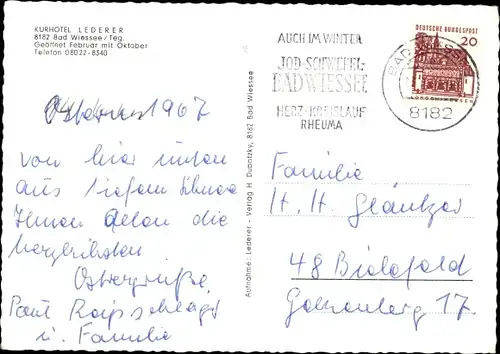 KURHOTEL LEDERER
8182 Bad Wiessee/Teg.
Geöffnet Februar mit Oktober
Telefon 08022-8340
Ostern 1967
von hier unten
aus tiefem Schnee
Ihnen allen die
herzlichsten
Ostergrüße,
Paul
u. Familie
Aufnahme: Lederer - Verlag H. Dubotzky, 8182 Bad Wiessee
AUCH IM WINTER
JOD-SCHWEFEL-
BAD WIESSEE
HERZ-KREISLAUF
RHEUMA
BAD WIESSEE
8182
DEUTSCHE BUNDESPOST
20
Familie
H. H.
48 Bielefeld
17.